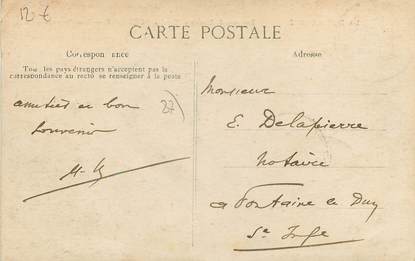 12 €
CARTE POSTALE
Correspondance
Adresse
Tous les pays étrangers n'acceptent pas la
correspondance au recto se renseigner à la poste
27
amitiés et bon
souvenir
Monsieur
E. Delapierre
notaire
à Fontaine le Dun
Sne Infre